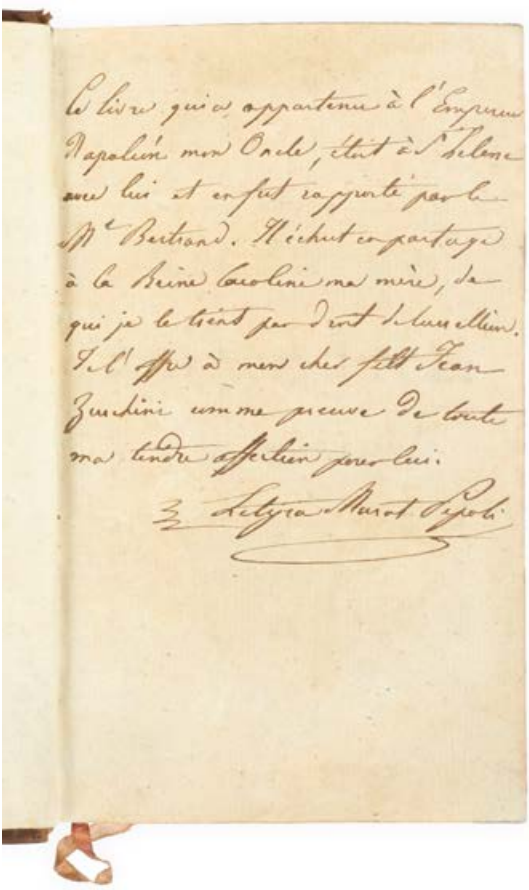 Ce livre qui a appartenu à l'Empereur
Napoléon mon Oncle, était à Ste helene
avec lui et en fut rapporté par le
Mal Bertrand. Il échut en partage
à la Reine Caroline ma mère, de
qui je le tient par droit de succession.
Je l'offre à mon cher fils Jean
Zucchini comme preuve de toute
ma tendre affection pour lui.
Letizia Murat Pepoli